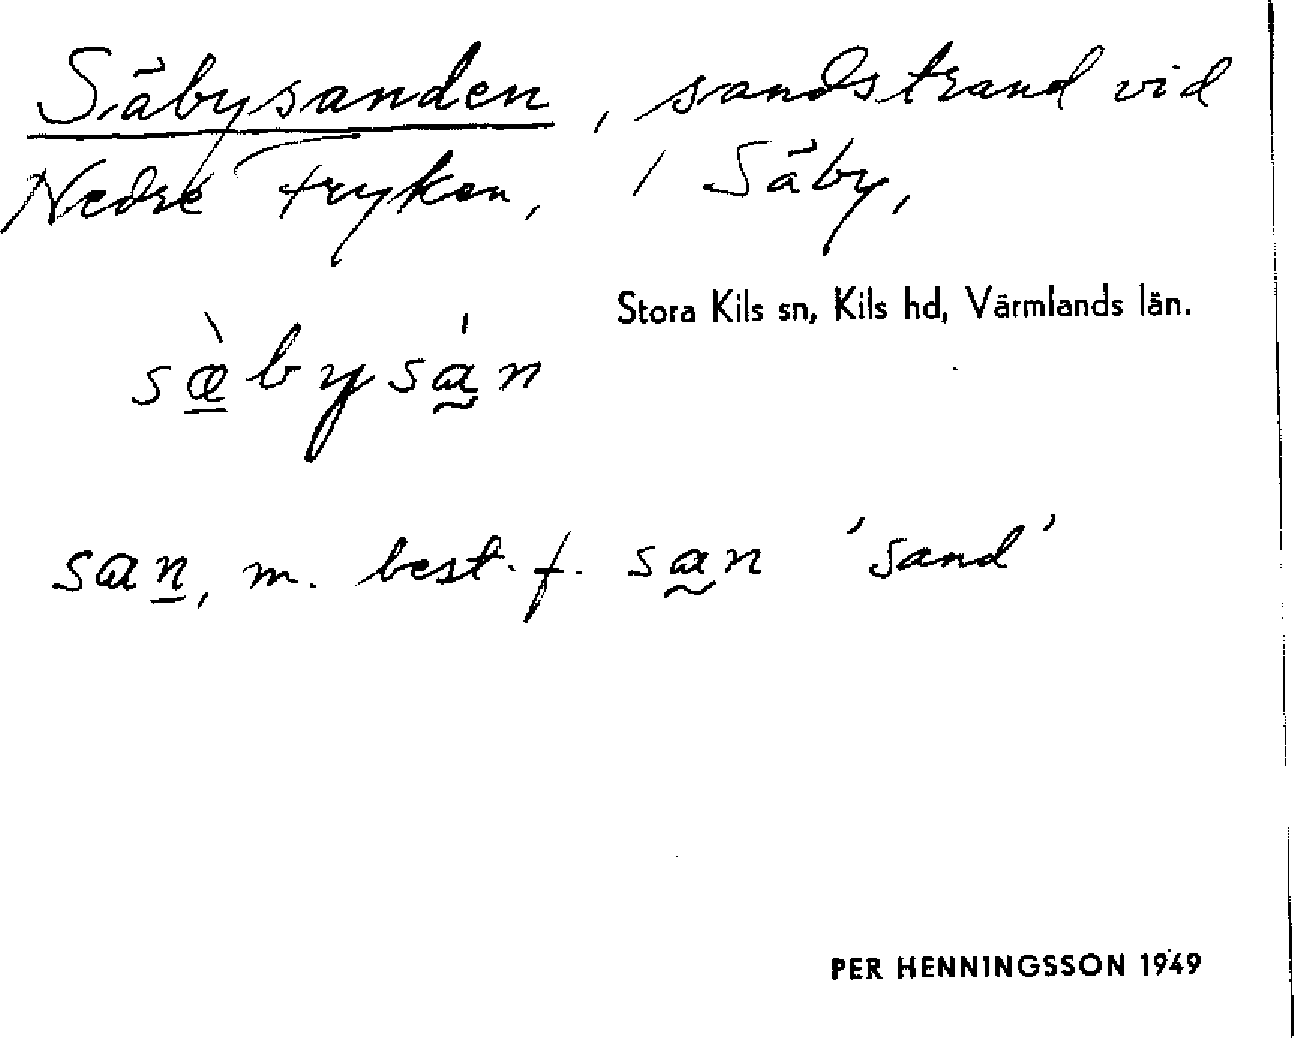 Säbysanden, sandstrand vid
Nedre Fryken, / Säby,
Stora Kils sn, Kils hd, Värmlands län.
sæ̀bysán
san, m. best. f. san 'sand'
PER HENNINGSSON 1949